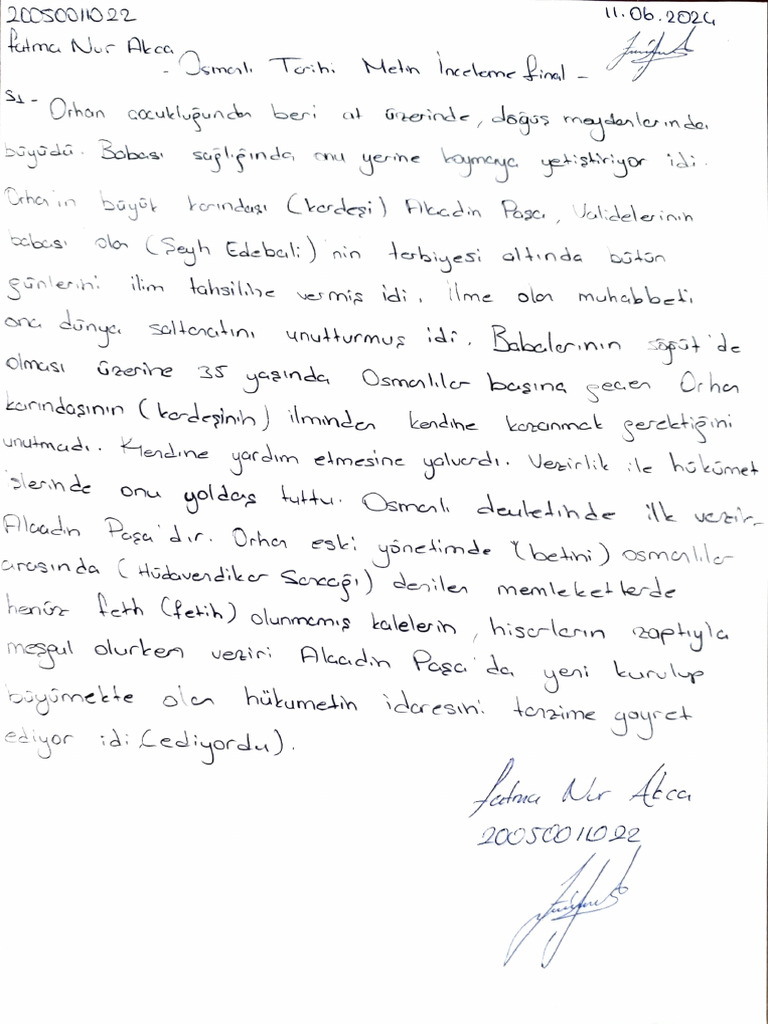 20050011022
11.06.2024
Fatma Nur Akca
- Osmanlı Tarihi Metin İnceleme final -
S1 - Orhan çocukluğundan beri at üzerinde, döğüş meydanlarında
büyüdü. Babası sağlığında onu yerine koymaya yetiştiriyor idi.
Orhan'ın büyük karındaşı (kardeşi) Alaadin Paşa, Validelerinin
babası olan (Şeyh Edebali)'nin terbiyesi altında bütün
günlerini ilim tahsiline vermiş idi. İlme olan muhabbeti
ona dünya saltanatını unutturmuş idi. Babalarının söğüt'de
olması üzerine 35 yaşında Osmanlılar başına geçen Orhan
karındaşının (kardeşinin) ilminden kendine kazanmak gerektiğini
unutmadı. Kendine yardım etmesine yalvardı. Vezirlik ile hükümet
işlerinde onu yoldaş tuttu. Osmanlı devletinde ilk vezir-
Alaadin Paşa'dır. Orhan eski yönetimde (betini) osmanlılar
arasında (Hüdavendikar Sancağı) denilen memleketlerde
henüz feth (fetih) olunmamış kalelerin, hisarların zaptıyla
meşgul olurken veziri Alaadin Paşa'da yeni kurulup
büyümekte olan hükumetin idaresini tanzime gayret
ediyor idi (ediyordu).
Fatma Nur Akca
20050011022